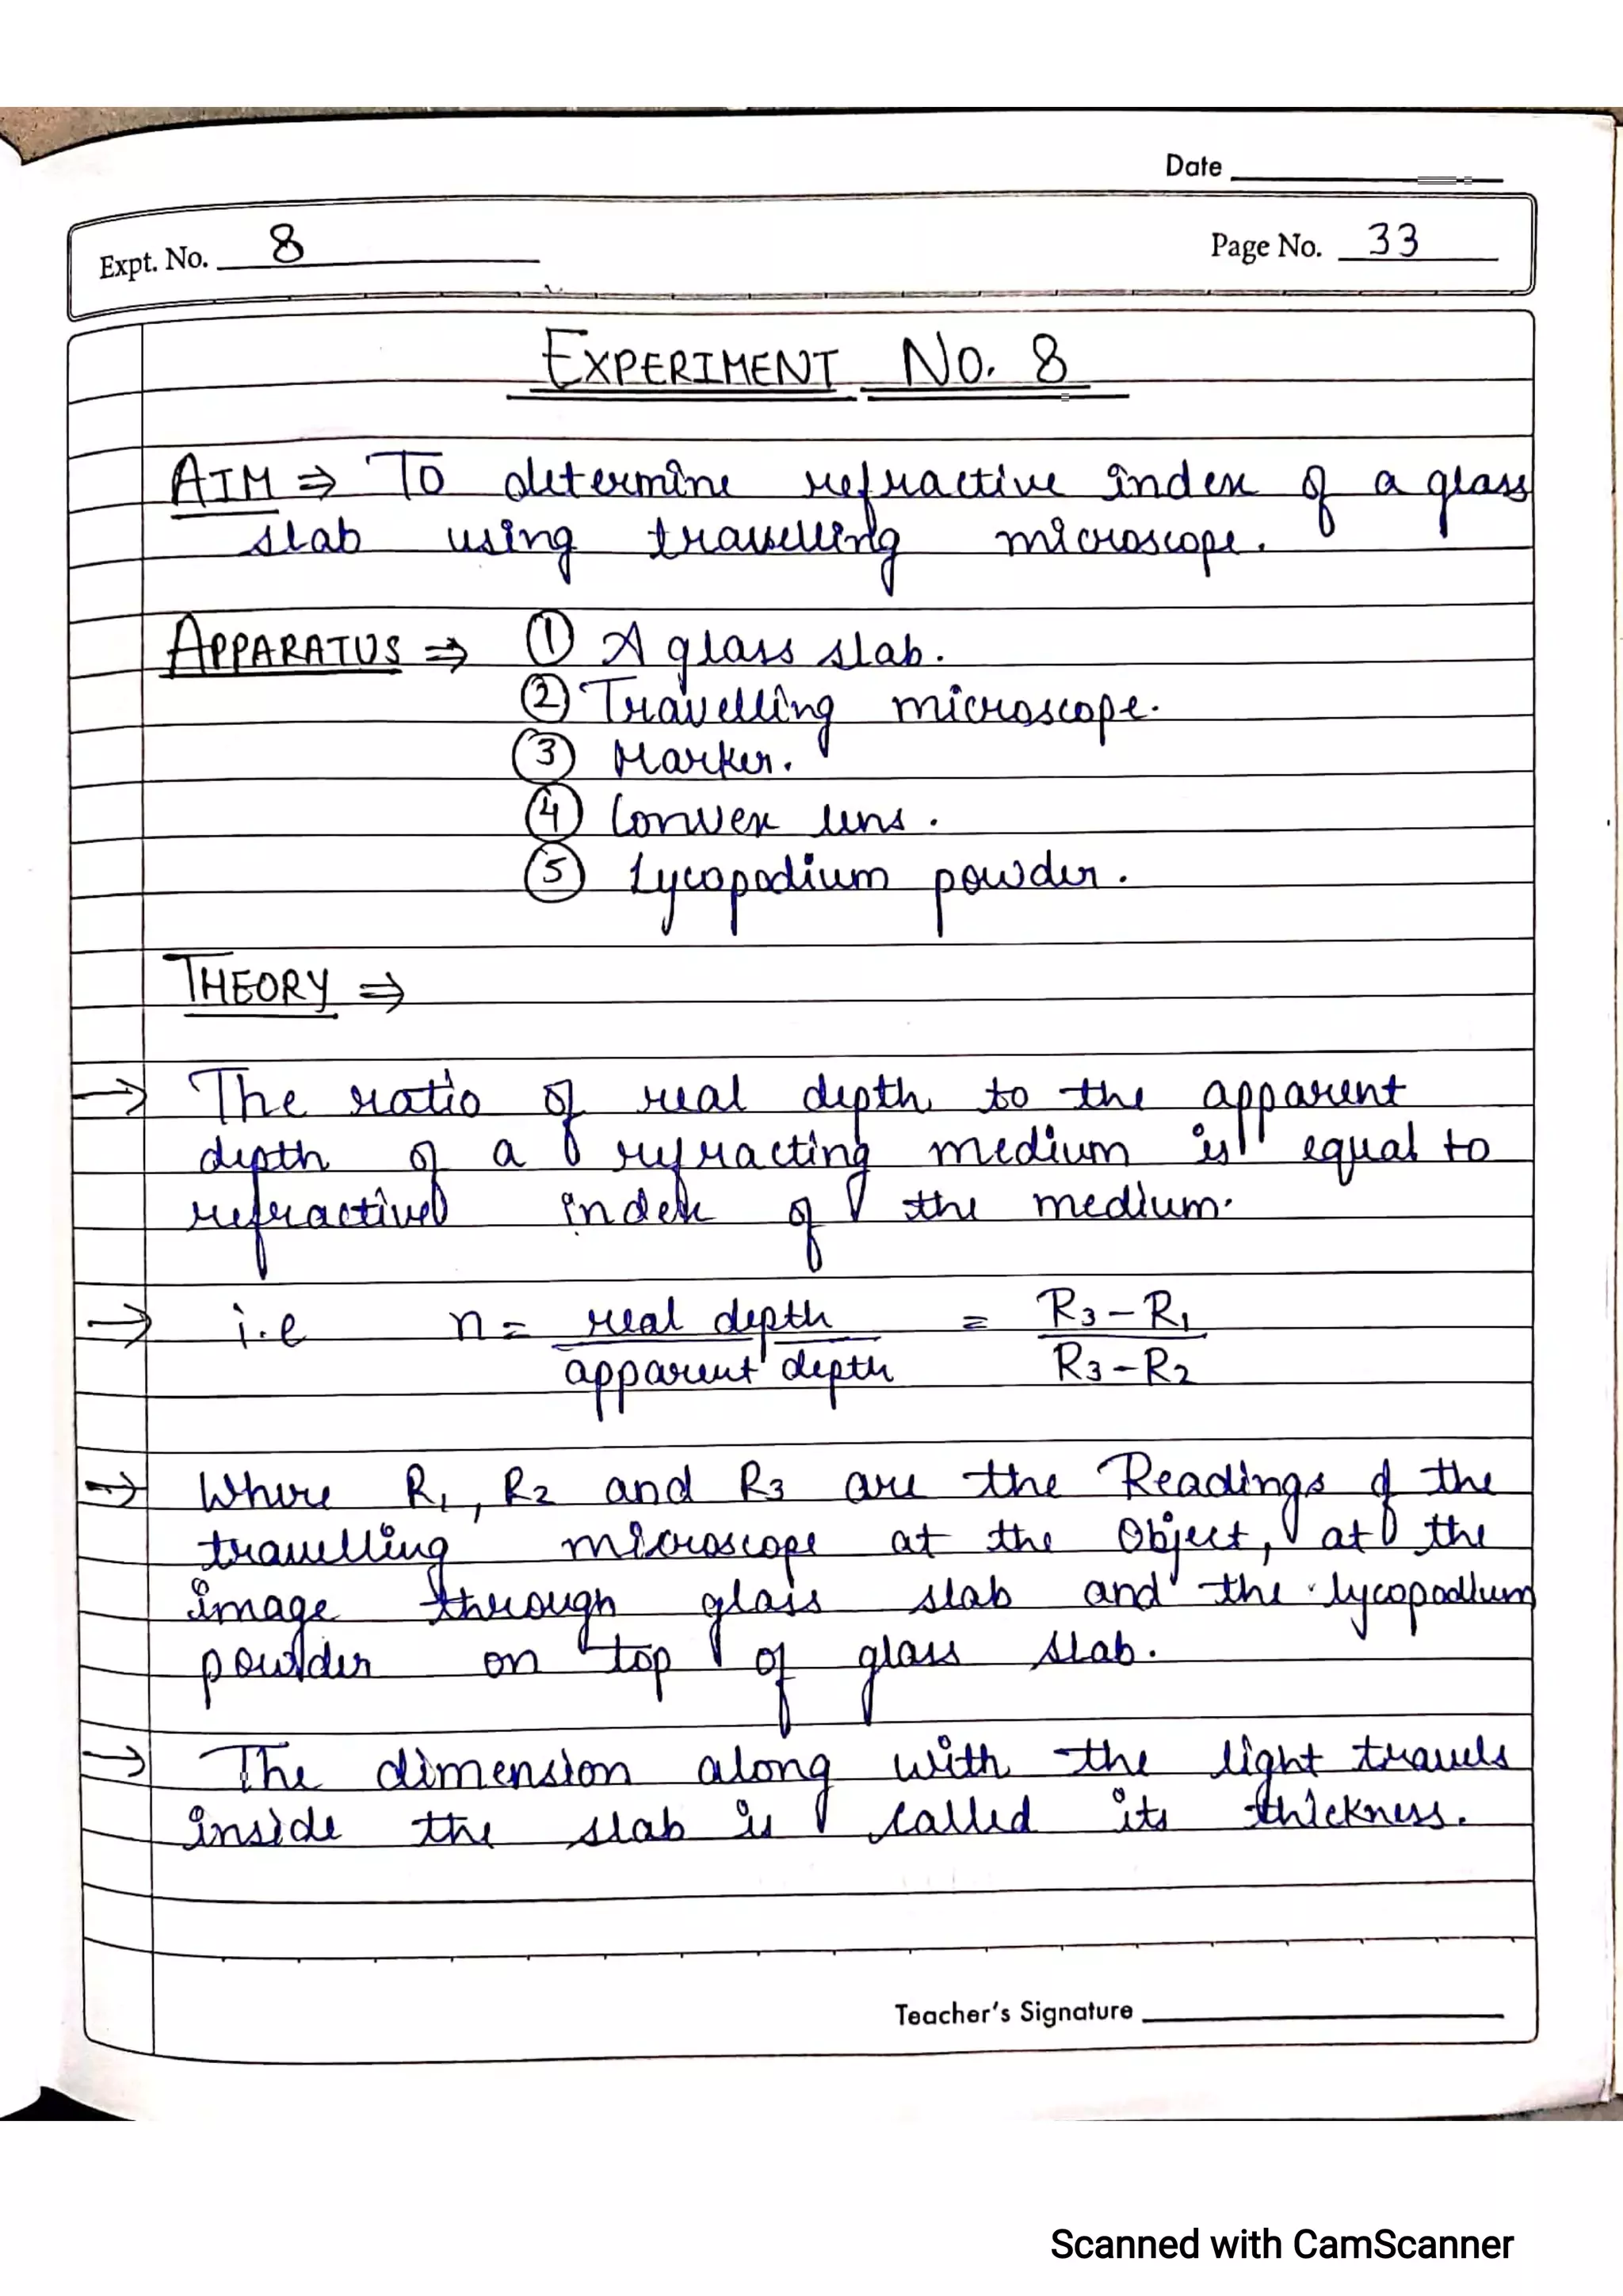 Date
Expt. No. 8
Page No. 33
EXPERIMENT No. 8
AIM ⇒ To determine refractive index of a glass
slab using travelling microscope.
APPARATUS ⇒ ① A glass slab.
② Travelling microscope.
③ Marker.
④ Convex lens.
⑤ Lycopodium powder.
THEORY ⇒
→ The ratio of real depth to the apparent
depth of a refracting medium is equal to
refractive index of the medium.
→ i.e n = real depth / apparent depth = R3 - R1 / R3 - R2
→ Where R1, R2 and R3 are the Readings of the
travelling microscope at the Object, at the
image through glass slab and the lycopodium
powder on top of glass slab.
→ The dimension along with the light travels
inside the slab is called its thickness.
Teacher's Signature
Scanned with CamScanner